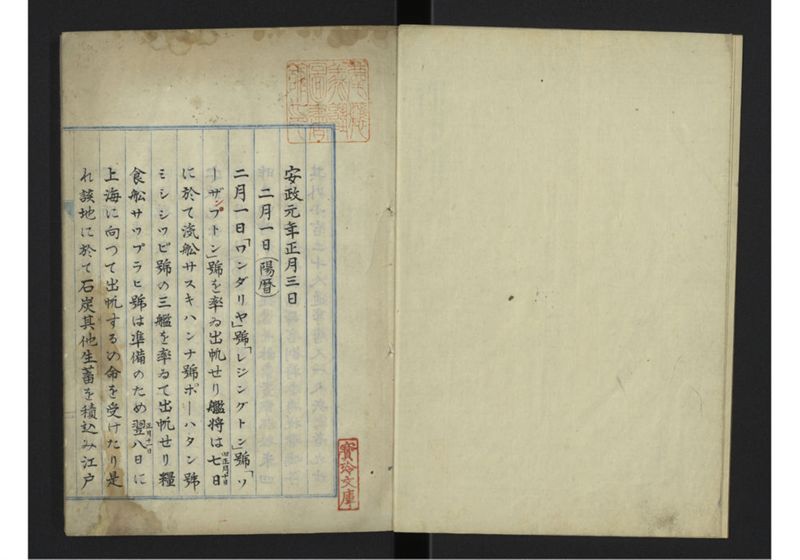 安政元年正月三日
二月一日(陽暦)
二月一日「ワンダリヤ」號「レシングトン」號「ソ
ーザンプトン」號を率ゐ出帆せり艦将は七日
旧正月十日
に於て滊船サスキハンナ號ポーハタン號
ミシシッピ號の三艦を率ゐて出帆せり糧
食船サップラヒ號は準備のため翌八日に
正月十一日
上海に向つて出帆するの命を受けたり是
れ該地に於て石炭其他生蓄を積込み江戸
寶玲文庫